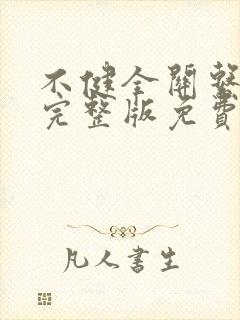 不健全關繫
完整版免費
凡人書生